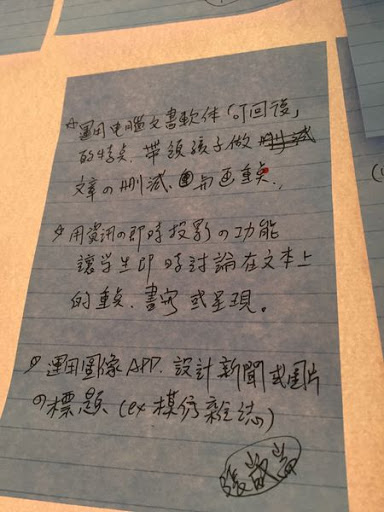 ☆運用电腦文書軟体「可回復」
的特點.帶領孩子做
文章の刪減、圈与画重点.
☆用資訊の即時投影の功能
讓学生即時討論在文本上
的重点.書寫或呈現。
☆運用圖像APP.設計新聞或圖片
の標題、(ex模仿雜誌)